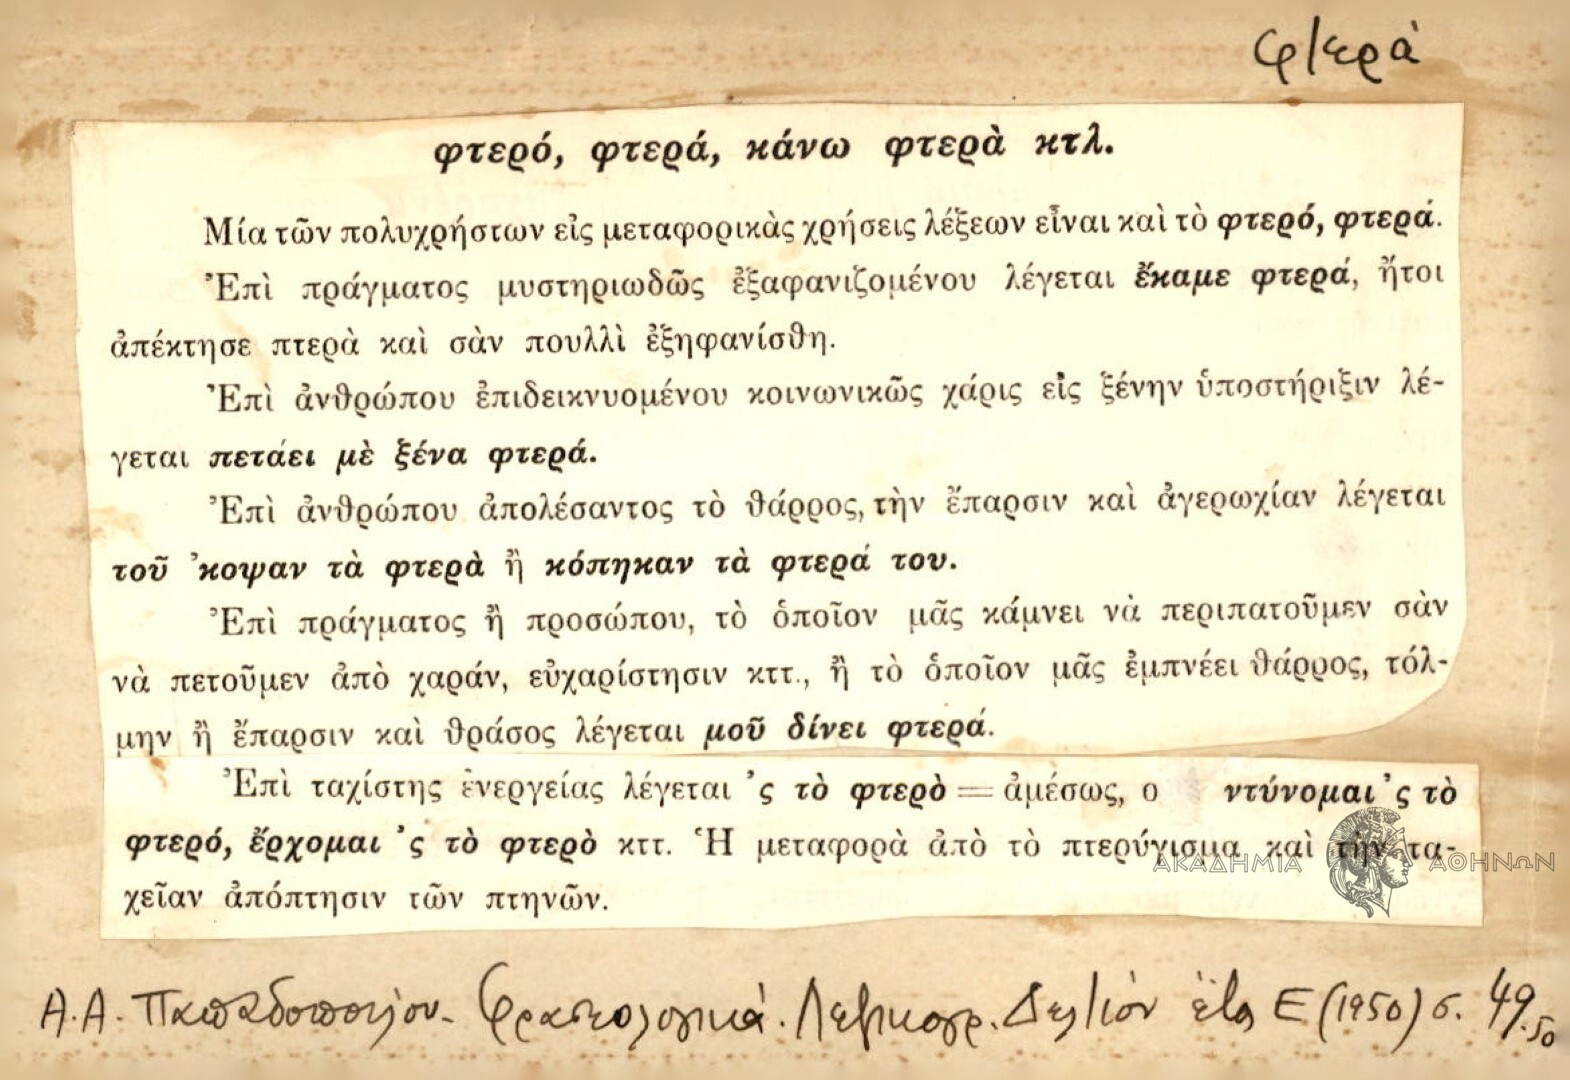 φτερά
φτερό, φτερά, κάνω φτερὰ κτλ.
Μία τῶν πολυχρήστων εἰς μεταφορικὰς χρήσεις λέξεων εἶναι καὶ τὸ φτερό, φτερά.
Ἐπὶ πράγματος μυστηριωδῶς ἐξαφανιζομένου λέγεται ἔκαμε φτερά, ἤτοι
ἀπέκτησε πτερὰ καὶ σὰν πουλλὶ ἐξηφανίσθη.
Ἐπὶ ἀνθρώπου ἐπιδεικνυομένου κοινωνικῶς χάρις εἰς ξένην ὑποστήριξιν λέ-
γεται πετάει μὲ ξένα φτερά.
Ἐπὶ ἀνθρώπου ἀπολέσαντος τὸ θάρρος, τὴν ἔπαρσιν καὶ ἀγερωχίαν λέγεται
τοῦ ᾿κοψαν τὰ φτερὰ ἢ κόπηκαν τὰ φτερά του.
Ἐπὶ πράγματος ἢ προσώπου, τὸ ὁποῖον μᾶς κάμνει νὰ περιπατοῦμεν σὰν
νὰ πετοῦμεν ἀπὸ χαράν, εὐχαρίστησιν κττ., ἢ τὸ ὁποῖον μᾶς ἐμπνέει θάρρος, τόλ-
μην ἢ ἔπαρσιν καὶ θράσος λέγεται μοῦ δίνει φτερά.
Ἐπὶ ταχίστης ἐνεργείας λέγεται ᾿ς τὸ φτερὸ = ἀμέσως, ο ντύνομαι ᾿ς τὸ
φτερό, ἔρχομαι ᾿ς τὸ φτερὸ κττ. Ἡ μεταφορὰ ἀπὸ τὸ πτερύγισμα καὶ τὴν τα-
ΑΚΑΔΗΜΙΑ ΑΘΗΝΩΝ
χεῖαν ἀπόπτησιν τῶν πτηνῶν.
Α. Α. Παπαδοπούλου - Φρασεολογικά. Λεξικογρ. Δελτίον ἔτος Ε (1950) σ. 49.50